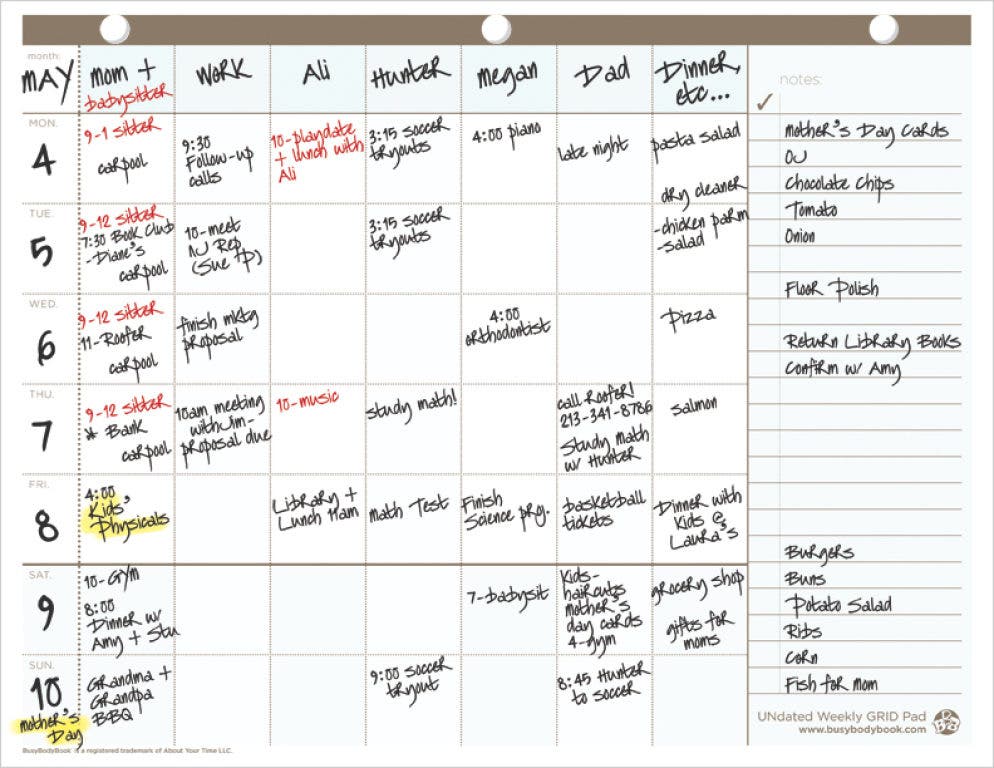 month:
MAY
mom +
babysitter
WORK
Ali
Hunter
megan
Dad
Dinner,
etc...
notes:
✓
MON.
4
9-1 sitter
carpool
9:30
Follow-up
calls
10-playdate
+ lunch with
Ali
3:15 soccer
tryouts
4:00 piano
late night
pasta salad
dry cleaner
TUE.
5
9-12 sitter
7:30 Book Club
-Diane's
carpool
10-meet
NJ Rep
(Sue P)
3:15 soccer
tryouts
-chicken parm
-salad
WED.
6
9-12 sitter
11-Roofer
carpool
finish mktg
proposal
4:00
orthodontist
Pizza
THU.
7
9-12 sitter
* Bank
carpool
10am meeting
with Jim-
proposal due
10-music
study math!
call Roofer!
213-341-8786
Study math
w/ Hunter
salmon
FRI.
8
4:00
Kids'
Physicals
Library +
Lunch 11am
math Test
Finish
Science proj.
basketball
tickets
Dinner with
Kids @
Laura's
SAT.
9
10-Gym
8:00
Dinner w/
Amy + Stu
7-babysit
Kids-
haircuts
mother's
day cards
4-gym
grocery shop
gifts for
moms
SUN.
10
mother's
Day
Grandma +
Grandpa
BBQ
9:00 soccer
tryout
8:45 Hunter
to soccer
mother's Day Cards
OJ
Chocolate Chips
Tomato
Onion
Floor Polish
Return Library Books
Confirm w/ Amy
Burgers
Buns
Potato Salad
Ribs
Corn
Fish for mom
UNdated Weekly GRID Pad
www.busybodybook.com
BusyBodyBook is a registered trademark of About Your Time LLC.